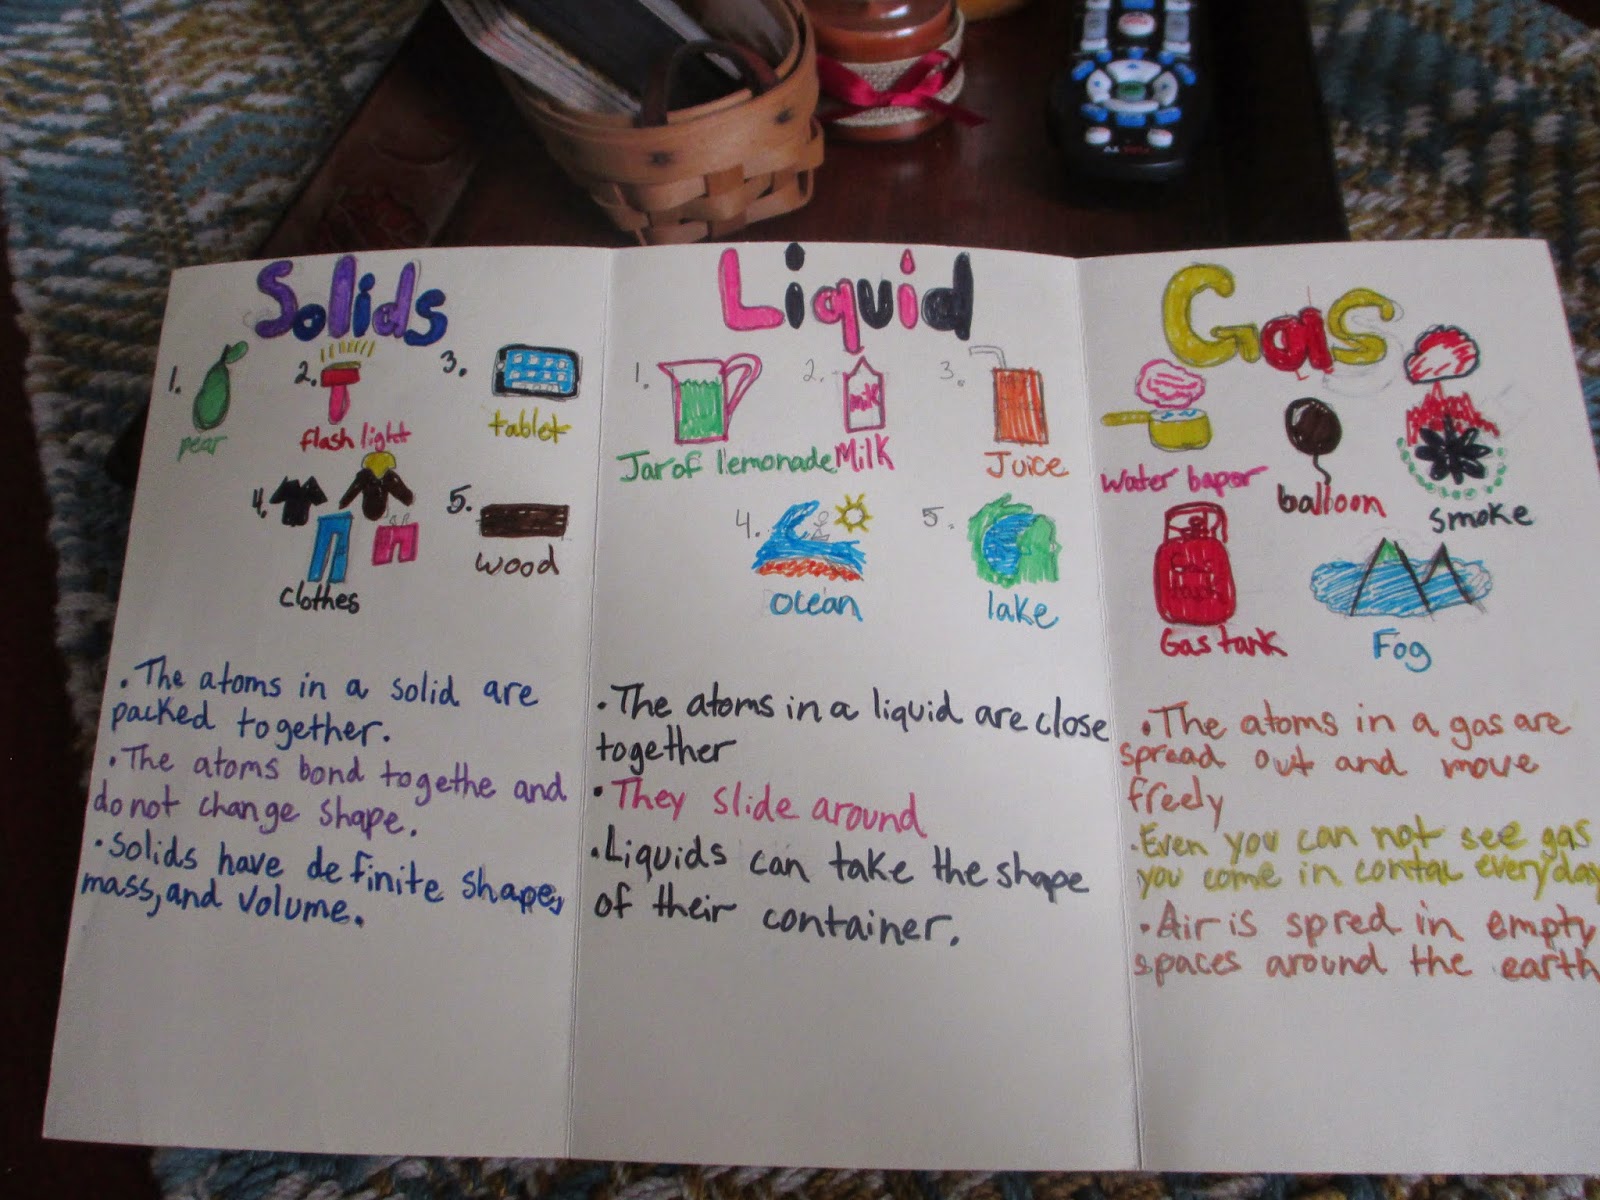 Solids
1.
pear
2.
flash light
3.
tablet
4.
clothes
5.
wood
• The atoms in a solid are
packed together.
• The atoms bond togethe and
do not change shape.
• Solids have definite shape,
mass, and volume.
Liquid
1.
Jar of lemonade
2.
milk
Milk
3.
Juice
4.
ocean
5.
lake
• The atoms in a liquid are close
together
• They slide around
• Liquids can take the shape
of their container.
Gas
water bapor
balloon
smoke
Gas tank
Fog
• The atoms in a gas are
spread out and move
freely
• Even you can not see gas
you come in contac everyday
• Air is spred in empty
spaces around the earth